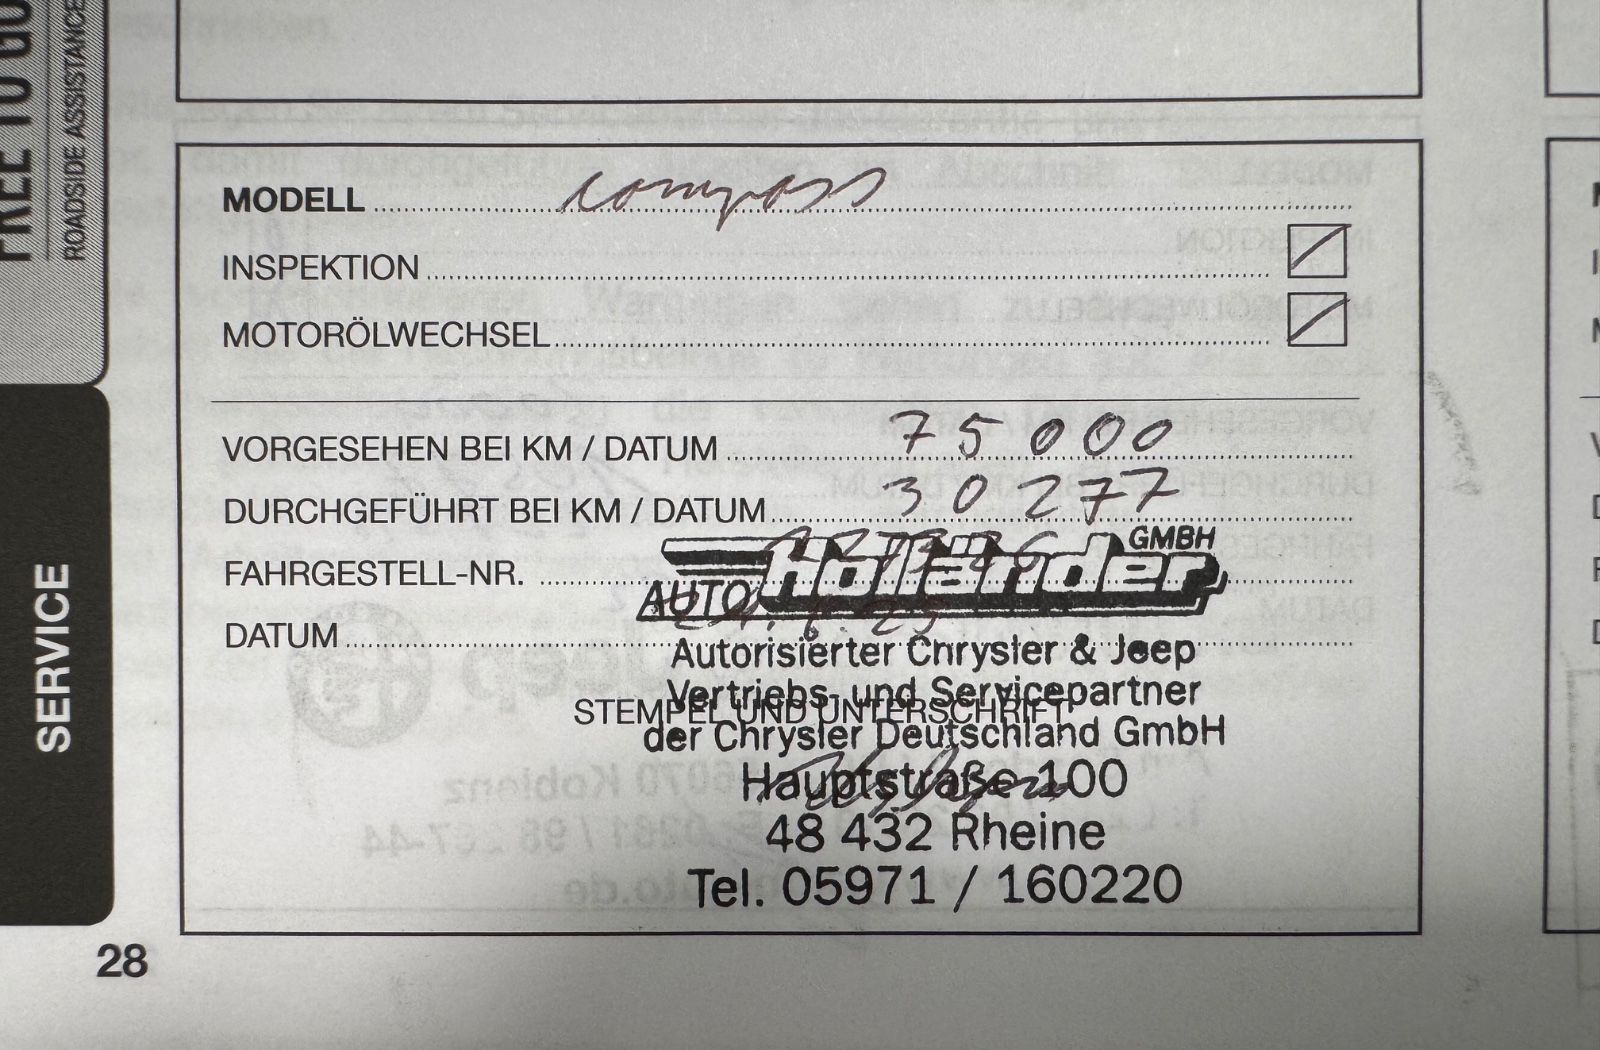 FREE TO GO
ROADSIDE ASSISTANCE
SERVICE
MODELL compass
INSPEKTION
MOTORÖLWECHSEL
VORGESEHEN BEI KM / DATUM 75000
DURCHGEFÜHRT BEI KM / DATUM 30277
FAHRGESTELL-NR.
DATUM
AUTO Holländer GMBH
Autorisierter Chrysler & Jeep
Vertriebs- und Servicepartner
STEMPEL UND UNTERSCHRIFT
der Chrysler Deutschland GmbH
Hauptstraße 100
48 432 Rheine
Tel. 05971 / 160220
28